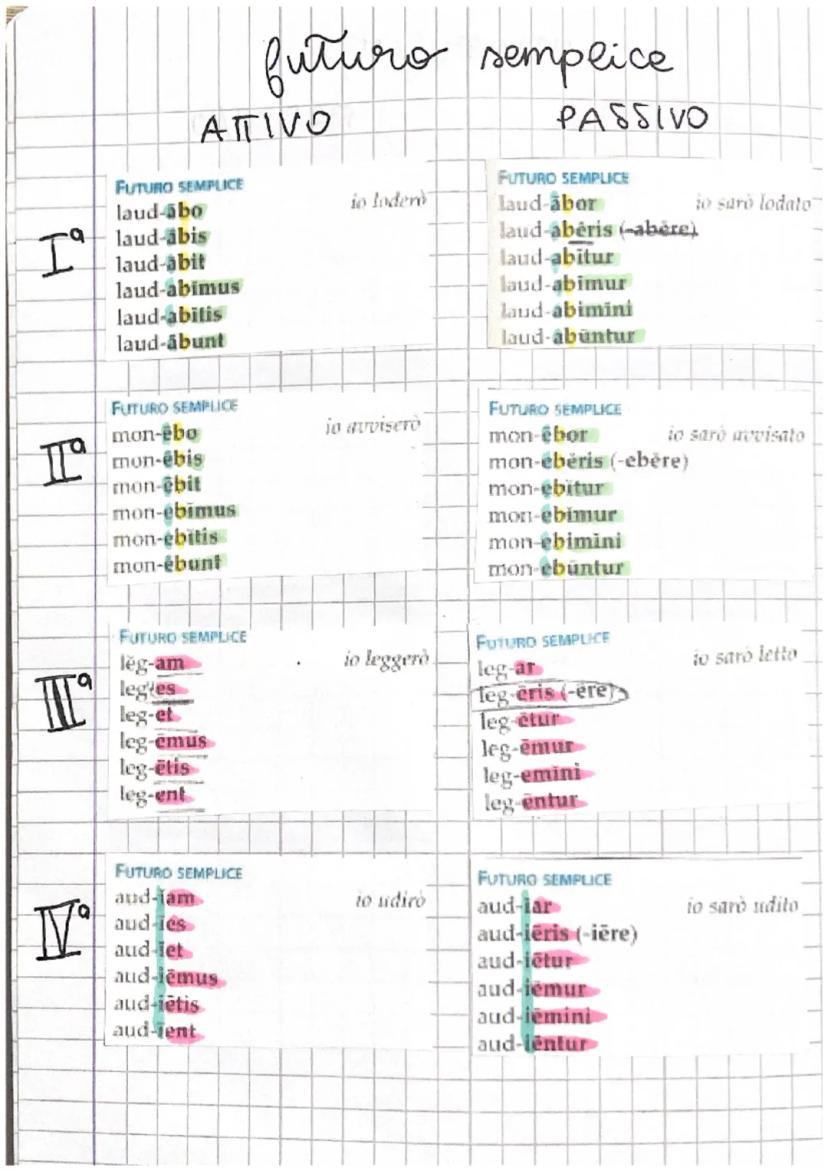 futuro semplice
ATTIVO
PASSIVO
Iª
FUTURO SEMPLICE
io loderò
laud-ābo
laud-ābis
laud-ābit
laud-abĭmus
laud-abĭtis
laud-ābunt
FUTURO SEMPLICE
io sarò lodato
laud-ābor
laud-abĕris (-abĕre)
laud-abĭtur
laud-abĭmur
laud-abimĭni
laud-abūntur
IIª
FUTURO SEMPLICE
io avviserò
mon-ēbo
mon-ēbis
mon-ēbit
mon-ebĭmus
mon-ebĭtis
mon-ēbunt
FUTURO SEMPLICE
io sarò avvisato
mon-ēbor
mon-ebĕris (-ebĕre)
mon-ebĭtur
mon-ebĭmur
mon-ebimĭni
mon-ebūntur
IIIª
FUTURO SEMPLICE
io leggerò
lĕg-am
leg-es
leg-et
leg-ēmus
leg-ētis
leg-ent
FUTURO SEMPLICE
io sarò letto
leg-ar
leg-ēris (-ēre)
leg-ētur
leg-ēmur
leg-emĭni
leg-ēntur
IVª
FUTURO SEMPLICE
io udirò
aud-ĭam
aud-ĭes
aud-ĭet
aud-iēmus
aud-iētis
aud-ĭent
FUTURO SEMPLICE
io sarò udito
aud-ĭar
aud-iēris (-iēre)
aud-iētur
aud-iēmur
aud-iēmini
aud-iēntur